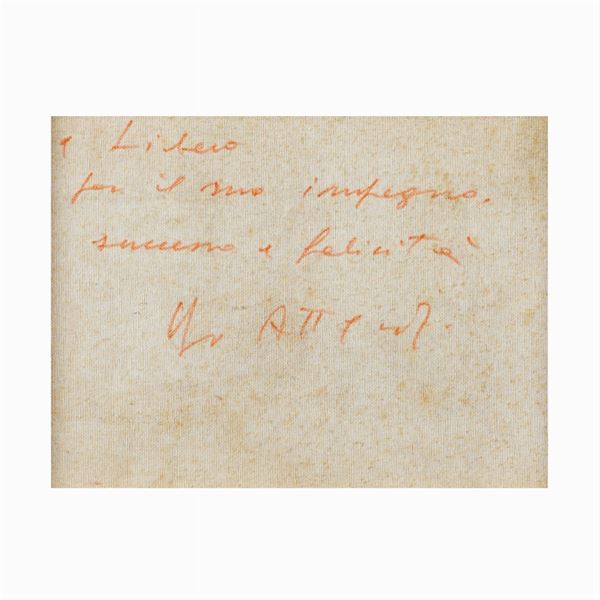 a Libero
per il suo impegno,
successo e felicità
Ugo ATTardi